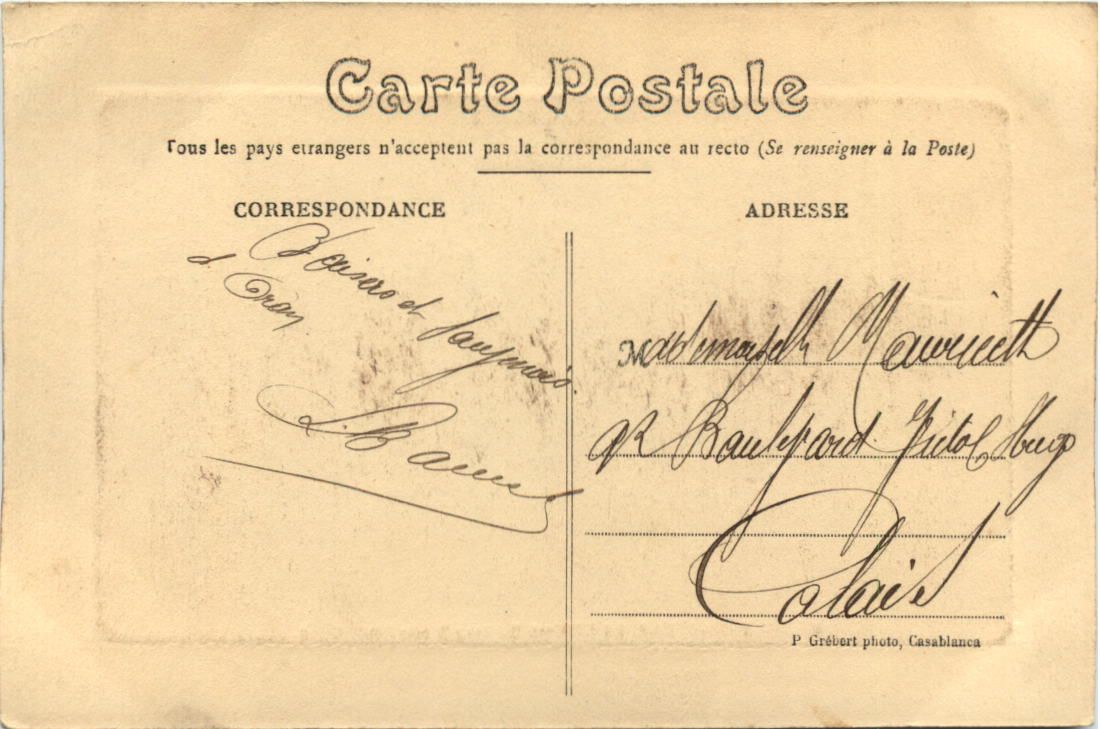 Carte Postale
Tous les pays etrangers n'acceptent pas la correspondance au recto (Se renseigner à la Poste)
CORRESPONDANCE
Baisers et
d'Oran
L.
ADRESSE
Mademoiselle
Boulevard Victor Hugo
Calais
P Grébert photo, Casablanca